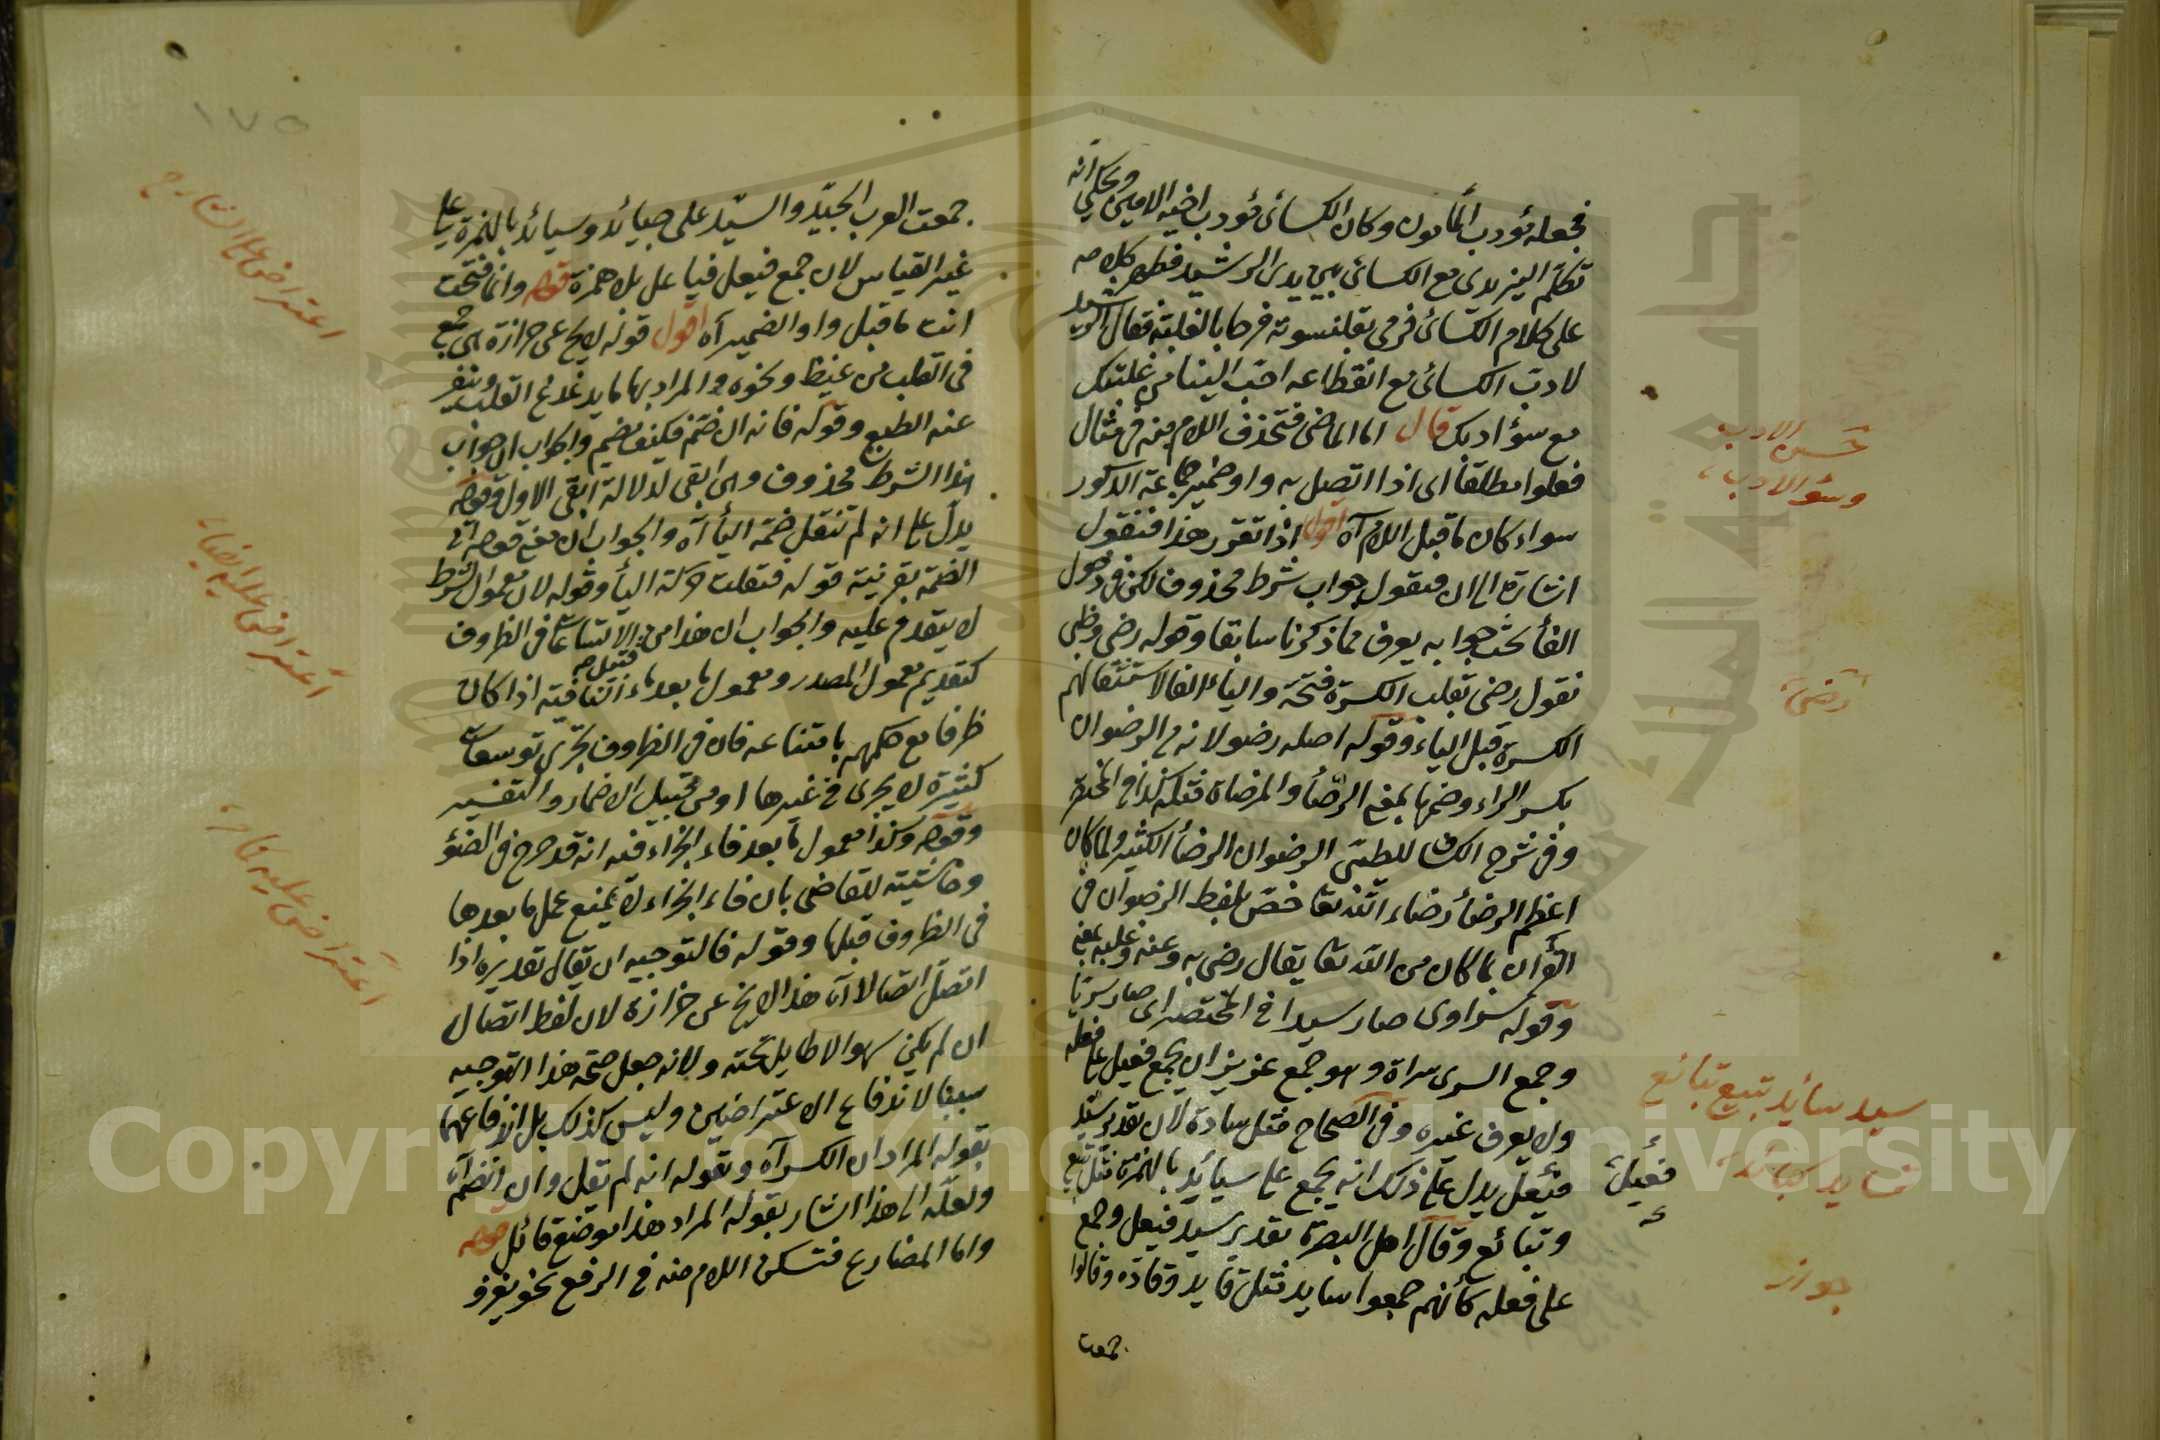 فجعله مؤدب المأمون وكان الكسائى مؤدب اخيه الامين وحكى انه
تكلم اليزيدى مع الكسائى بين يدى الرشيد فظهر كلامه
على كلام الكسائى فرمى بقلنسوته فرحا بالغلبة فقال الرشيد
لادب الكسائى مع انقطاعه احب الينا من غلبتك
مع سؤ ادبك قال اما الماضى فتحذف اللام منه فى مثال
فعلوا مطلقا اى اذا اتصل به واو ضمير جماعة الذكور
سواء كان ما قبل اللام آه اقول اذا تقرر هذا فنقول
اشارة الى ان فنقول جواب شرط محذوف لكن فى دخول
الفأ بحث جوابه يعرف مما ذكرنا سابقا وقوله رضى وطى
نقول رضى تقلب الكسرة فتحة والياء الفا لاستثقالهم
الكسرة قبل الياء وقوله اصله رضو لانه من الرضوان
بكسر الراء وضمها بمعنى الرضأ والمرضاة مثله كذا فى المختصر
وفى شرح الكشاف للطيبى الرضوان الرضأ الكثير ولما كان
اعظم الرضأ رضاء الله تعا خص بلفظ الرضوان فى
القرأن بما كان من الله تعا يقال رضى به وعنه وعليه بمعنى
وقوله سرا وى صار سيدا فى المختصر اى صار سريا
وجمع السرى سراة وهو جمع عزيز ان يجمع فعيل على فعله
ولا يعرف غيره وفى الصحاح مثل سادة لان تقدير سيد
فيعل يدل على ذلك انه يجمع على سيائد بالهمزة مثل تبيع
وتبائع وقال اهل البصرة تقدير سيد فيعل وجمع
على فعله كأنهم جمعوا سايد مثل قايد وقادة وقالوا
جمعت
حسن الادب
وسؤ الادب
رضى
سيد سائد تبيع تبائع
فعيل
جواز
١٧٥
جمعت العرب الجيد والسيد على جيائد وسيائد بالهمزة على
غير القياس لان جمع فيعل فياعل بلا همزة قوله وانما فتحت
انت ما قبل واو الضمير آه اقول قوله لايخ عن حزازة هى جمع
فى القلب من غيظ ونحوه والمراد بها ما يدغدغ القلب وينفر
عنه الطبع وقوله فانه ان ضم فكيف يضم والجواب ان جواب
هذا الشرط محذوف وهى ابقى لدلالة ابقى الاول وقوله
يدل على انه لم تنقل ضمة اليأ آه والجواب ان معنى قوله اتى
الضمة بقرينة قوله فنقلت حركة اليأ وقوله لان معمول الشرط
لا يتقدم عليه والجواب ان هذا من الاتساعات فى الظروف
كتقديم معمول المصدر ومعمول ما بعد ماء النافية اذا كان
ظرفا مع حكمهم بامتناعه فان فى الظروف يجرى توسعات
كثيرة لا يجرى فى غيرها او من قبيل الاضمار والتفسير
وقوله وكذا معمول ما بعد فاء الجزاء فيه انه قد صرح فى الضؤ
وحاشيته للقاضى بان فاء الجزاء لا يمنع عمل ما بعدها
فى الظروف قبلها وقوله فالتوجيه ان يقال تقديره اذا
اتصل اتصالا آه هذا لا يخ عن حزازة لان لفظ اتصال
ان لم يكن سهوا لا طايل تحته ولانه جعل صحة هذا التوجيه
سببا لاندفاع الاعتراضين وليس كذلك بل اندفاعهما
بقوله المراد ان الكسر آه وبقوله انه لم تقل وان انضم آه
ولعله الى هذا اشار بقوله المراد هذا موضع تأمل قوله
واما المضارع فتسكن اللام منه فى الرفع نحو يغزو
اعتراض على الشارح
اعتراض عليه ايضا
اعتراض عليه
Copyright © King Saud University